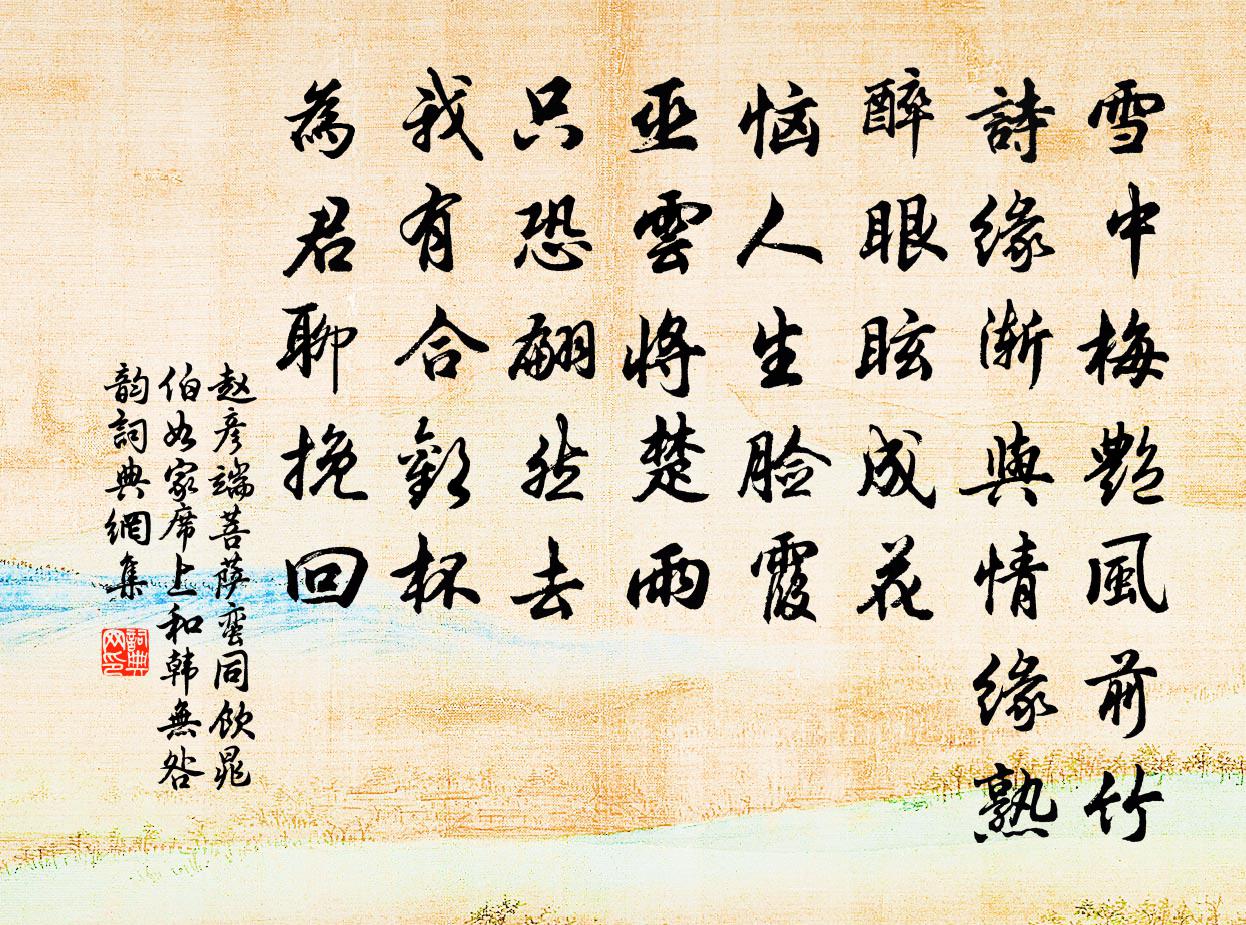 雪中梅艷風前竹
詩緣漸與情緣熟
醉眼眩成花
恼人生脸霞
巫雲將楚雨
只恐翩然去
我有合歡杯
為君聊挽回
赵彦端菩萨蛮同饮晁
伯如家席上和韩無咎
韵詞典網集
詞典网印